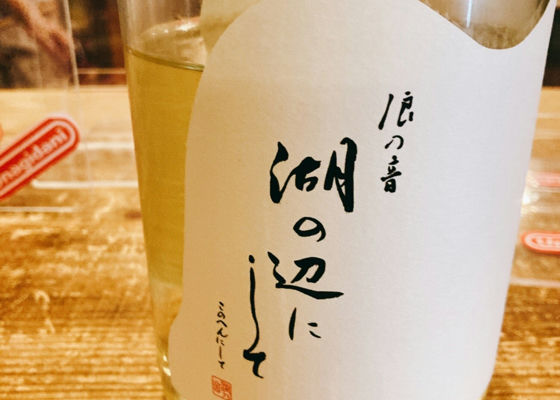 浪の音
湖の辺に
して
このへんにして